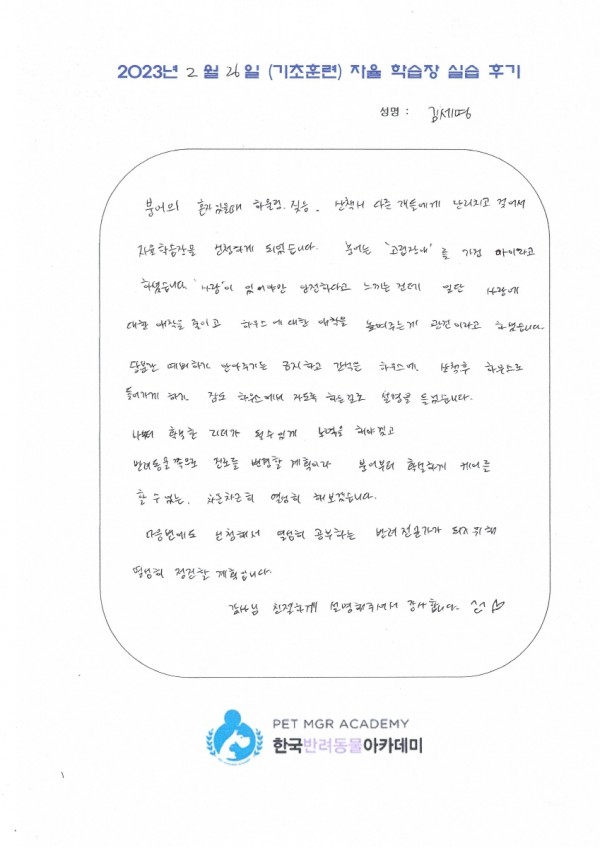 2023년 2월 26일 (기초훈련) 자율 학습장 실습 후기
성명 : 김세명
붕어의 혼자있을때 하울링. 짖음. 산책시 다른 개들에게 난리치고 짖어서
자율학습장을 신청하게 되었습니다. 붕어는 '고립장애'를 가진 아이라고
하셨습니다. '사람'이 있어야만 안전하다고 느끼는건데 일단 사람에
대한 애착을 줄이고 하우스에 대한 애착을 높여주는게 관건이라고 하셨습니다.
당분간 예뻐하기 안아주기는 금지하고 간식은 하우스에. 산책후 하우스로
들어가게 하기. 잠도 하우스에서 자도록 하는걸로 설명을 들었습니다.
나부터 확실한 리더가 될수있게 노력을 해야겠고
반려동물쪽으로 진로를 변경할 계획이라 붕어부터 확실하게 케어를
할 수 있는. 차근차근히 열심히 해보겠습니다.
다음번에도 신청해서 열심히 공부하는 반려전문가가 되기위해
열심히 정진할 계획입니다.
강사님 친절하게 설명해주셔서 감사합니다.
PET MGR ACADEMY
한국반려동물아카데미